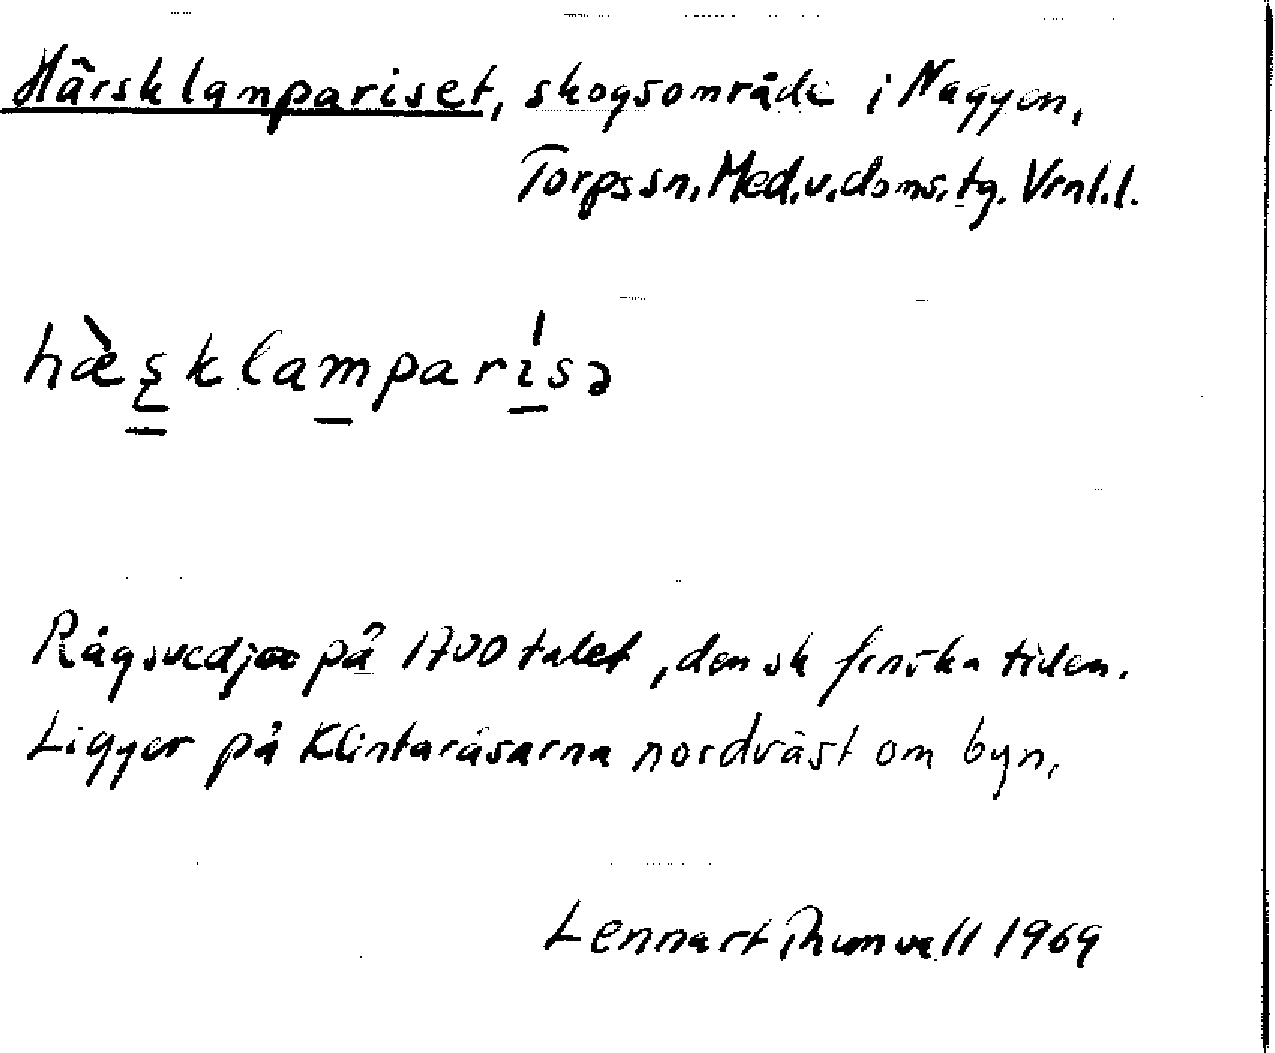 Härsklampariset, skogsområde i Naggen,
Torps sn, Med.v.doms.tg. Vrnl.l.
hæ̀ʂklamparı̍sə
Rågsvedjor på 1700 talet, den sk finska tiden.
Ligger på Klintaråsarna nordväst om byn,
Lennart Thunvall 1969